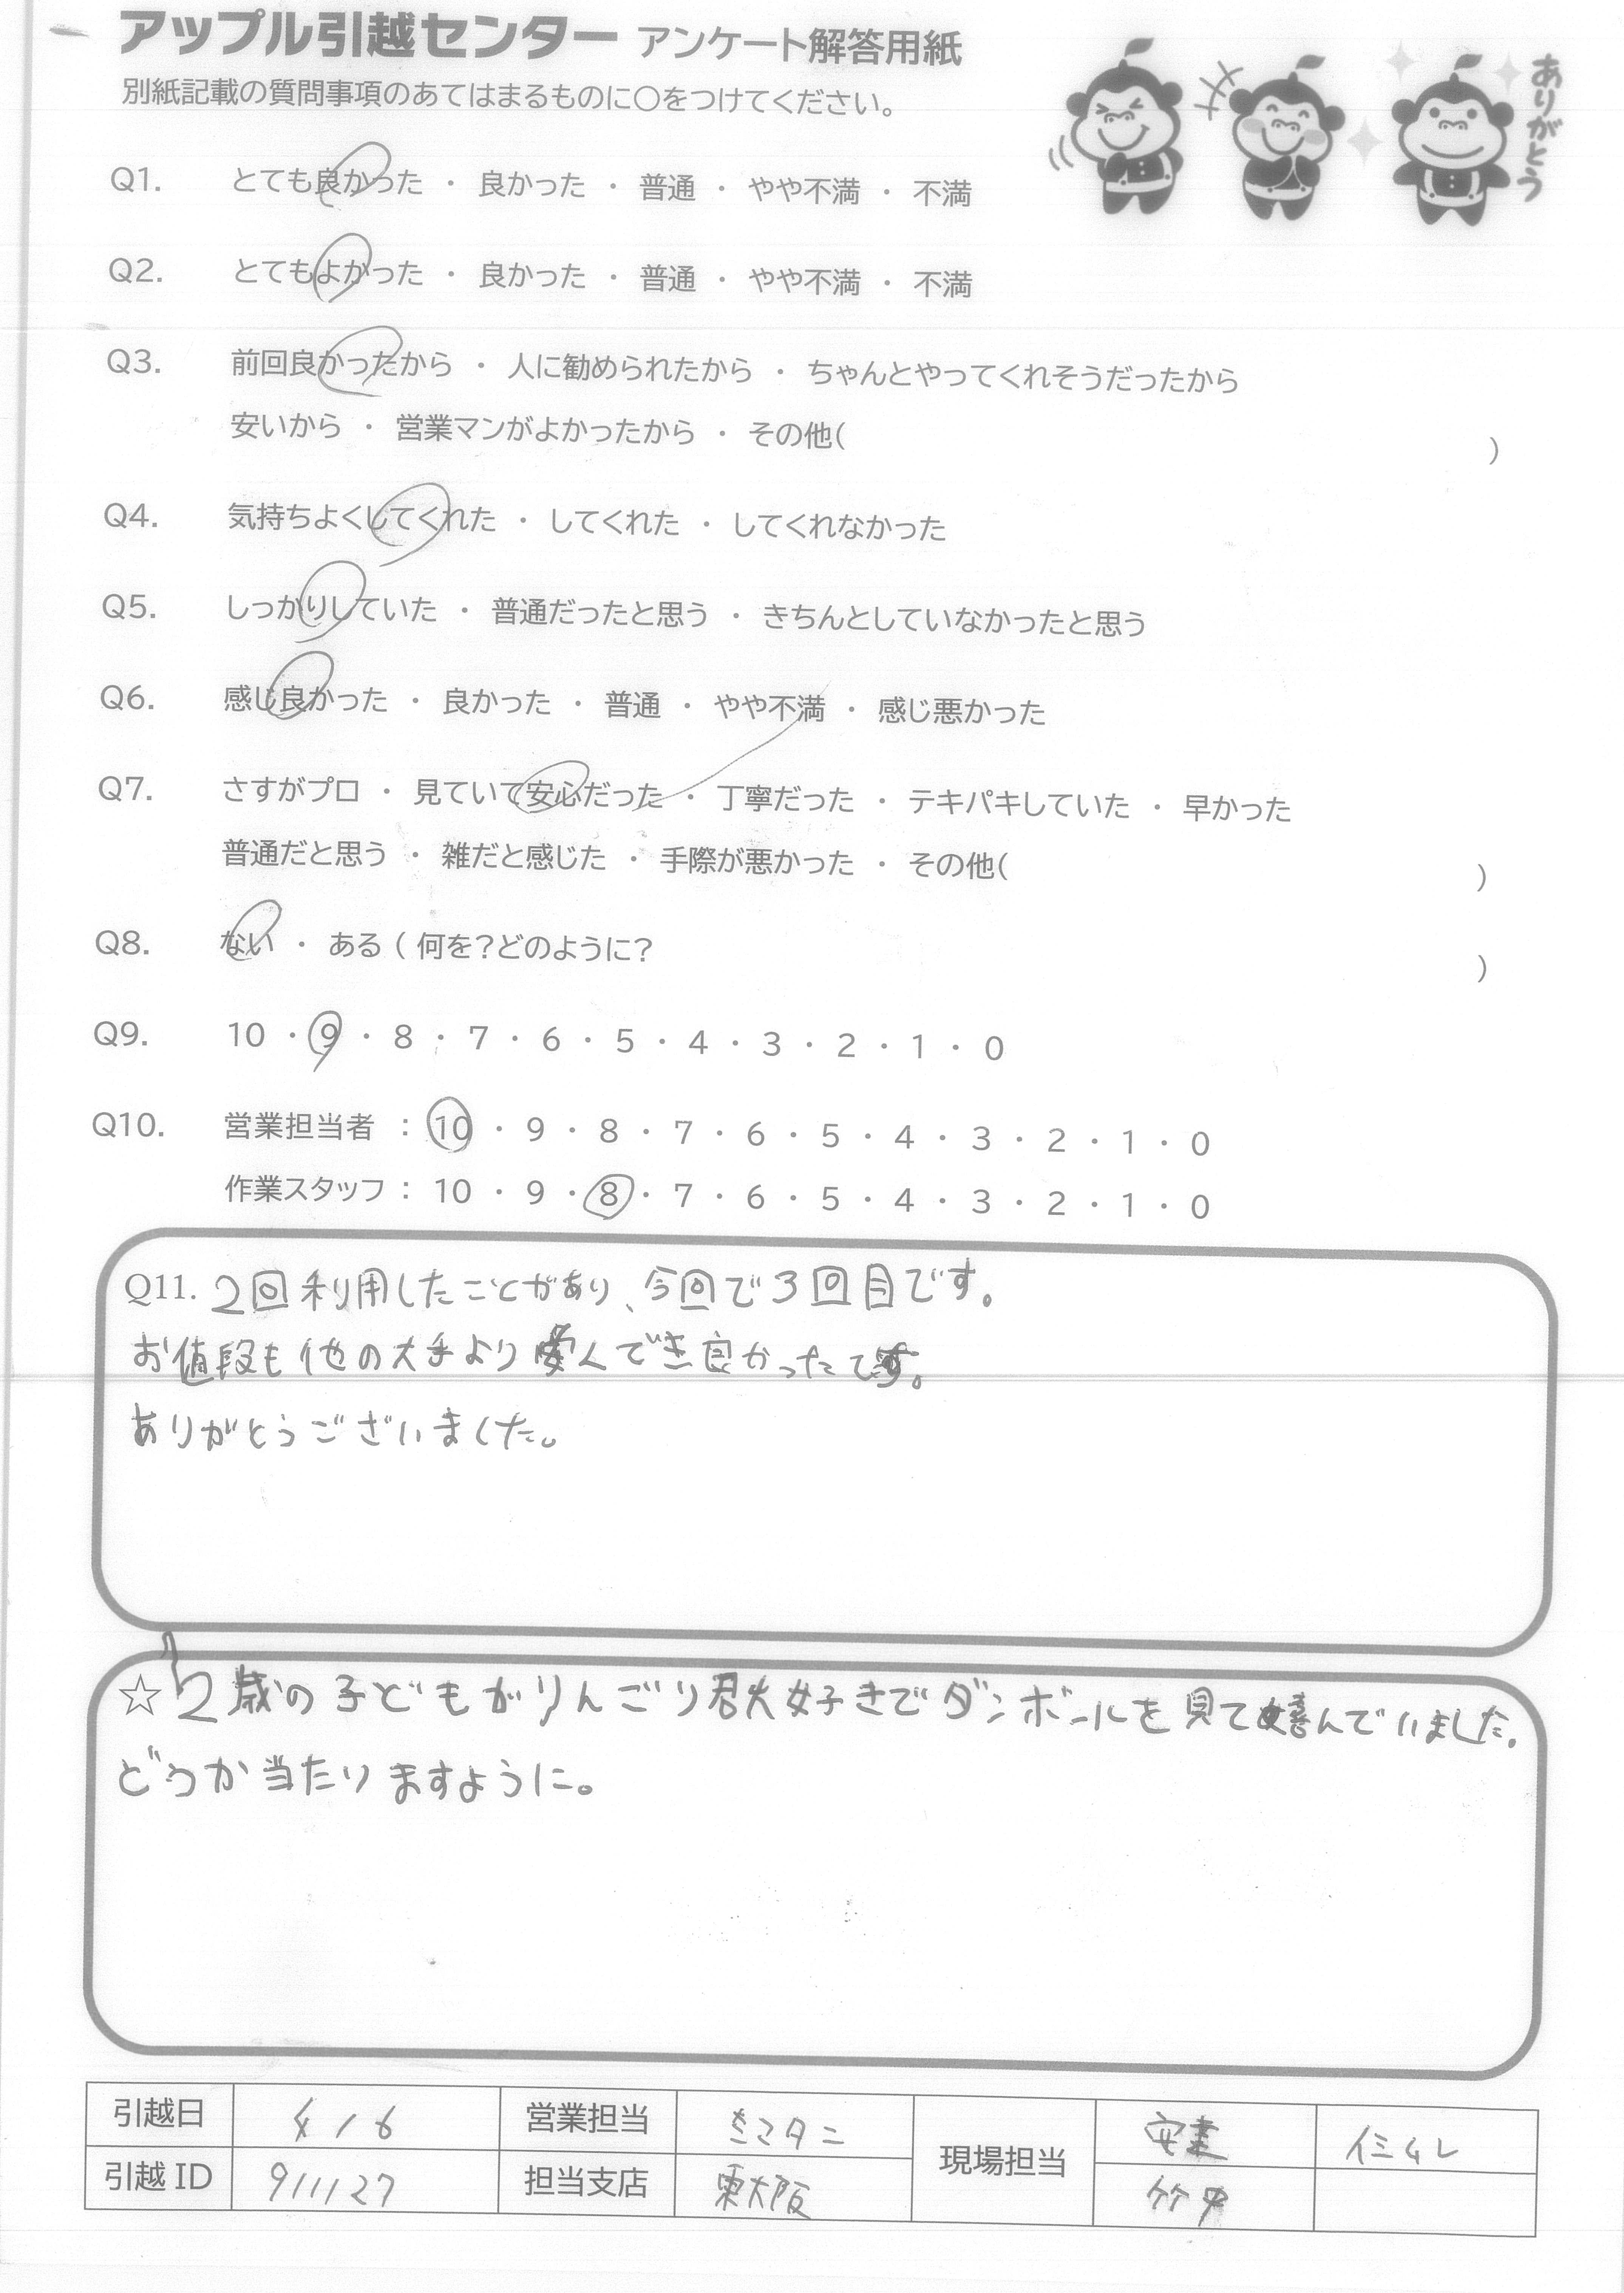 アップル引越センター アンケート解答用紙
別紙記載の質問事項のあてはまるものに○をつけてください。
ありがとう
Q1. とても良かった ・ 良かった ・ 普通 ・ やや不満 ・ 不満
Q2. とてもよかった ・ 良かった ・ 普通 ・ やや不満 ・ 不満
Q3. 前回良かったから ・ 人に勧められたから ・ ちゃんとやってくれそうだったから
安いから ・ 営業マンがよかったから ・ その他( )
Q4. 気持ちよくしてくれた ・ してくれた ・ してくれなかった
Q5. しっかりしていた ・ 普通だったと思う ・ きちんとしていなかったと思う
Q6. 感じ良かった ・ 良かった ・ 普通 ・ やや不満 ・ 感じ悪かった
Q7. さすがプロ ・ 見ていて安心だった ・ 丁寧だった ・ テキパキしていた ・ 早かった
普通だと思う ・ 雑だと感じた ・ 手際が悪かった ・ その他( )
Q8. ない ・ ある ( 何を?どのように? )
Q9. 10 ・ 9 ・ 8 ・ 7 ・ 6 ・ 5 ・ 4 ・ 3 ・ 2 ・ 1 ・ 0
Q10. 営業担当者 : 10 ・ 9 ・ 8 ・ 7 ・ 6 ・ 5 ・ 4 ・ 3 ・ 2 ・ 1 ・ 0
作業スタッフ : 10 ・ 9 ・ 8 ・ 7 ・ 6 ・ 5 ・ 4 ・ 3 ・ 2 ・ 1 ・ 0
Q11. 2回利用したことがあり、今回で3回目です。
お値段も他の大手より安くでき良かったです。
ありがとうございました。
☆ 2歳の子どもがりんごり君大好きでダンボールを見て喜んでいました。
どうか当たりますように。
引越日 4/6 営業担当 現場担当
引越ID 911127 担当支店 東大阪 竹中